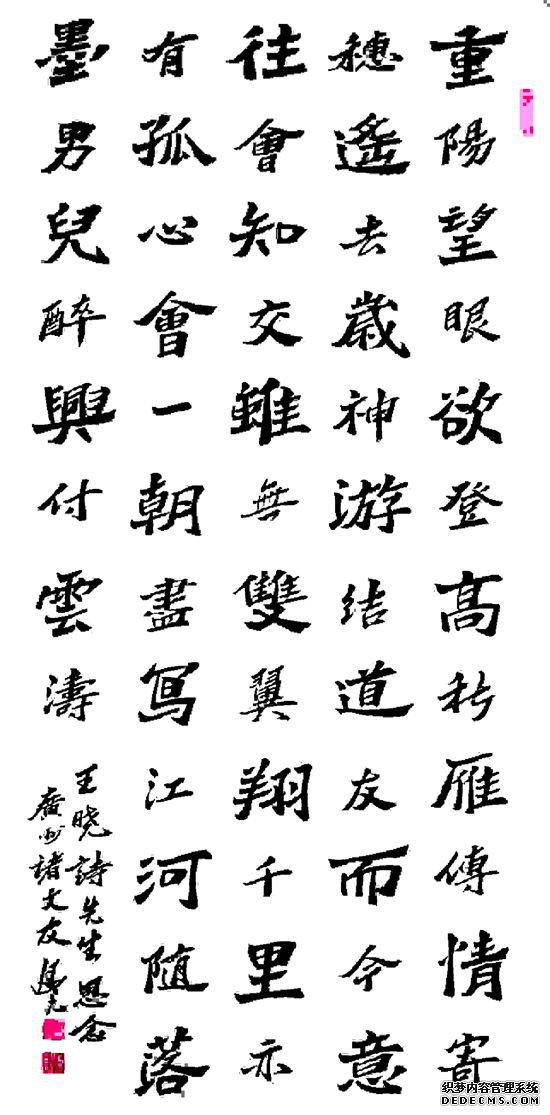 重陽望眼欲登高秋雁傳情寄
穗遙去歲神游结道友而今意
往會知交雖無雙翼翔千里亦
有孤心會一朝盡寫江河随落
墨男兒醉興付雲濤
王晓詩先生思念
廣州諸文友
织梦内容管理系统
DEDECMS.COM